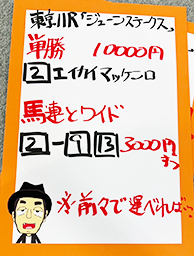 東京11R「ジューンステークス」
単勝 10000円
2 エイカイマッケンロ
馬連とワイド
2-9 13 3000円
ずつ
※前々で運べれば…